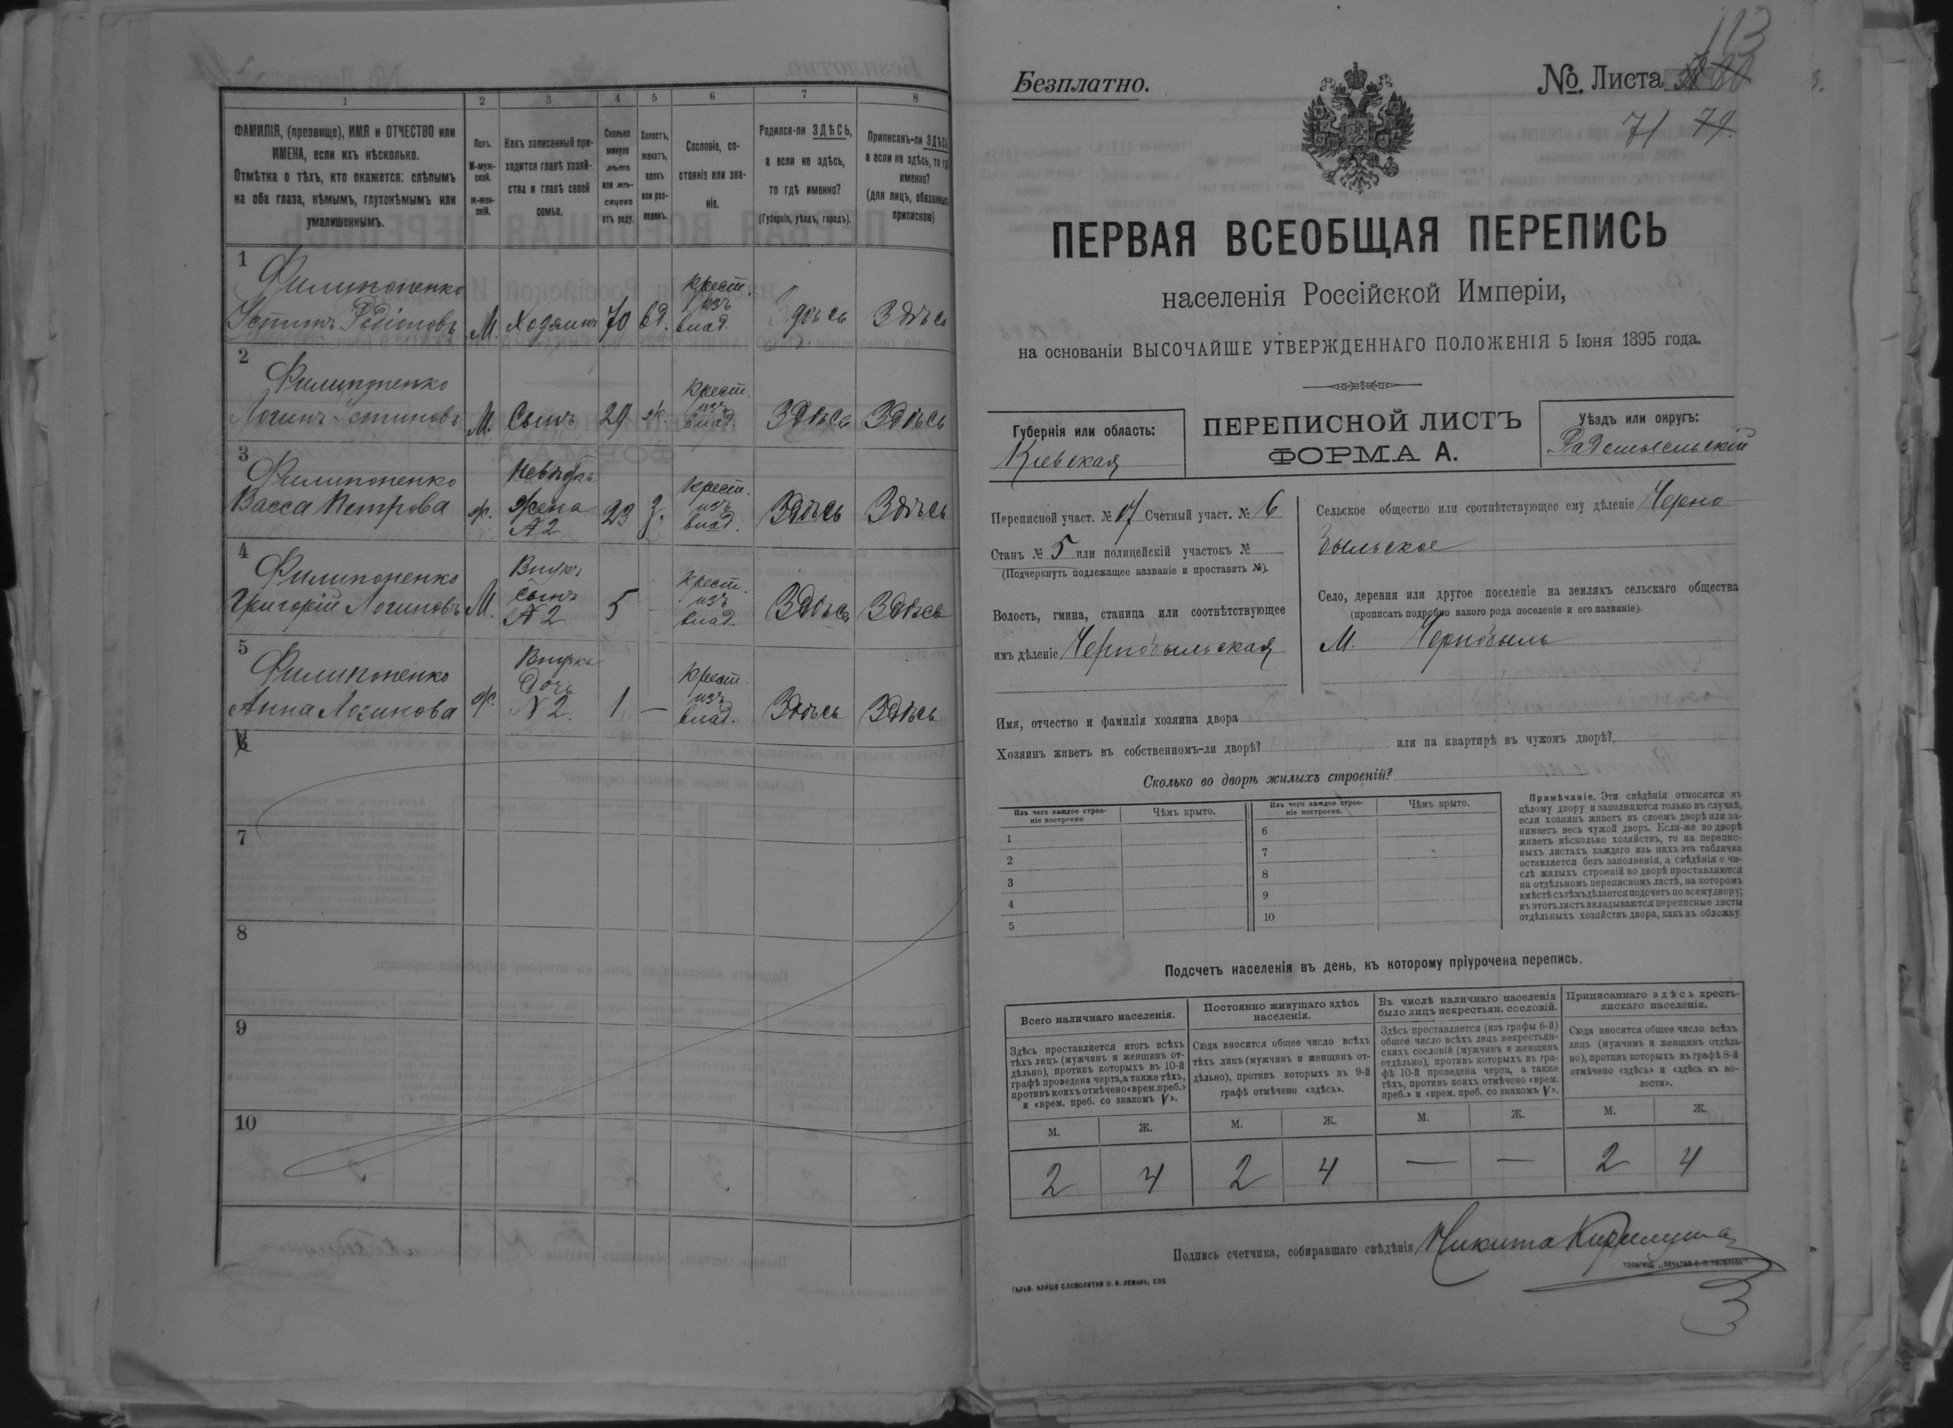 1 2 3 4 5 6 7 8
ФАМИЛІЯ, (прозвище), ИМЯ и ОТЧЕСТВО или
ИМЕНА, если ихъ нѣсколько.
Отмѣтка о тѣхъ, кто окажется: слѣпымъ
на оба глаза, нѣмымъ, глухонѣмымъ или
умалишеннымъ.
Полъ.
М-муж-
ской.
ж-жен-
скій.
Какъ записанный при-
ходится главѣ хозяй-
ства и главѣ своей
семьи.
Сколько
минуло
лѣтъ
или мѣ-
сяцевъ
отъ роду.
Холостъ,
женатъ,
вдовъ
или раз-
веденъ.
Сословіе, со-
стояніе или зва-
ніе.
Родился-ли ЗДѢСЬ,
а если не здѣсь,
то гдѣ именно?
(Губернія, уѣздъ, городъ).
Приписанъ-ли ЗДѢСЬ,
а если не здѣсь, то гдѣ
именно?
(для лицъ, обязанныхъ
припискою)
1
Филипоненко
Устинъ Родіоновъ М. Хозяинъ 70 вд. Крест. изъ влад. Здѣсь Здѣсь
2
Филипоненко
Логинъ Устиновъ М. Сынъ 29 ж. Крест. изъ влад. Здѣсь Здѣсь
3
Филипоненко
Васса Петрова ж. Невѣстка жена №2 23 з. Крест. изъ влад. Здѣсь Здѣсь
4
Филипоненко
Григорій Логиновъ М. Внукъ сынъ №2 5 — Крест. изъ влад. Здѣсь Здѣсь
5
Филипоненко
Анна Логинова ж. Внучка дочь №2. 1 — Крест. изъ влад. Здѣсь Здѣсь
6
7
8
9
10
113
Безплатно.
№. Листа
71 71.
ПЕРВАЯ ВСЕОБЩАЯ ПЕРЕПИСЬ
населенія Россійской Имперіи,
на основаніи ВЫСОЧАЙШЕ УТВЕРЖДЕННАГО ПОЛОЖЕНІЯ 5 Іюня 1895 года.
Губернія или область:
Кіевская
ПЕРЕПИСНОЙ ЛИСТЪ
ФОРМА А.
Уѣздъ или округъ:
Радомысльскій
Переписной участ. № 17 Счетный участ. № 6
Станъ № 5 или полицейскій участокъ №
(Подчеркнуть подлежащее названіе и проставить №).
Волость, гмина, станица или соотвѣтствующее
имъ дѣленіе Чернобыльская
Сельское общество или соотвѣтствующее ему дѣленіе Черно-
быльское
Село, деревня или другое поселеніе на земляхъ сельскаго общества
(прописать подробно какого рода поселеніе и его названіе)
М. Чернобыль
Имя, отчество и фамилія хозяина двора
Хозяинъ живетъ въ собственномъ-ли дворѣ? или на квартирѣ въ чужомъ дворѣ?
Сколько во дворѣ жилыхъ строеній?
Изъ чего каждое строе-
ніе построено
Чѣмъ крыто.
Изъ чего каждое строе-
ніе построено.
Чѣмъ крыто.
1 6
2 7
3 8
4 9
5 10
Примѣчаніе. Эти свѣдѣнія относятся къ
цѣлому двору и заполняются только въ случаѣ,
если хозяинъ живетъ въ своемъ дворѣ или за-
нимаетъ весь чужой дворъ. Если-же во дворѣ
живетъ нѣсколько хозяйствъ, то на перепис-
ныхъ листахъ каждаго изъ нихъ эта табличка
оставляется безъ заполненія, а свѣдѣнія о чи-
слѣ жилыхъ строеній во дворѣ проставляются
на отдѣльномъ переписномъ листѣ, на которомъ
вмѣстѣ съ тѣмъ дѣлается подсчетъ по всему двору;
въ этотъ листъ вкладываются переписные листы
отдѣльныхъ хозяйствъ двора, какъ въ обложку.
Подсчетъ населенія въ день, къ которому пріурочена перепись.
Всего наличнаго населенія.
Здѣсь проставляется итогъ всѣхъ
тѣхъ лицъ (мужчинъ и женщинъ от-
дѣльно), противъ которыхъ въ 10-й
графѣ проведена черта, а также тѣхъ,
противъ коихъ отмѣчено «врем. преб.»
и «врем. преб. со знакомъ V».
Постоянно живущаго здѣсь
населенія.
Сюда вносится общее число всѣхъ
тѣхъ лицъ (мужчинъ и женщинъ от-
дѣльно), противъ которыхъ въ 9-й
графѣ отмѣчено «здѣсь».
Въ числѣ наличнаго населенія
было лицъ некрестьян. сословій.
Здѣсь проставляется (изъ графы 6-й)
общее число всѣхъ лицъ некрестьян-
скихъ сословій (мужчинъ и женщинъ
отдѣльно), противъ которыхъ въ гра-
фѣ 10-й проведена черта, а также
тѣхъ, противъ коихъ отмѣчено «врем.
преб.» и «врем. преб. со знакомъ V».
Приписаннаго здѣсь кресть-
янскаго населенія.
Сюда вносится общее число всѣхъ
лицъ (мужчинъ и женщинъ отдѣль-
но), противъ которыхъ въ графѣ 8-й
отмѣчено «здѣсь» и «здѣсь въ во-
лости».
М. Ж. М. Ж. М. Ж. М. Ж.
2 4 2 4 — — 2 4
Подпись счетчика, собиравшаго свѣдѣнія Никита
ГАЛЬВ. КЛИШЕ СЛОВОЛИТНИ О. И. ЛЕМАНЪ, СПБ
ТОВАРИЩ. „ПЕЧАТНЯ С. П. ЯКОВЛЕВА".
3